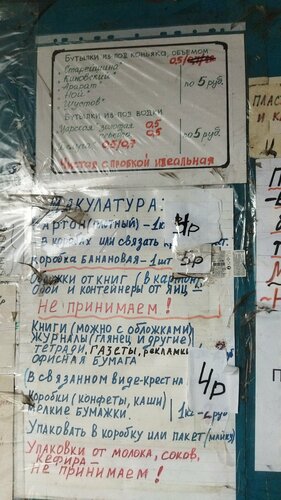 Бутылки из под коньяка, объемом 0,5/
"Старейшина"
"Киновский"
"Арарат"
"Ной"
"Шустов"
по 5 руб.
Бутылки из под водки
Царская золотая 0,5
0,5
0,5/0,7
по 5 руб.
Чистая с пробкой идеальная
МАКУЛАТУРА:
КАРТОН (плотный) - 1кг
4р
в коробах или связать
Коробка банановая - 1шт
5р
Обложки от книг (в картон),
Обои и контейнеры от яиц
Не принимаем!
Книги (можно с обложками)
Журналы (глянец и другие)
тетради, газеты, реклама
офисная бумага
(в связанном виде - крест на
4р
Коробки (конфеты, каши)
мелкие бумажки.
1кг - 2 руб
Упаковать в коробку или пакет (майка)
Упаковки от молока, соков,
кефира -
Не принимаем!